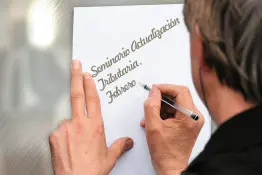 Seminario Actualización
Tributaria.
Febrero